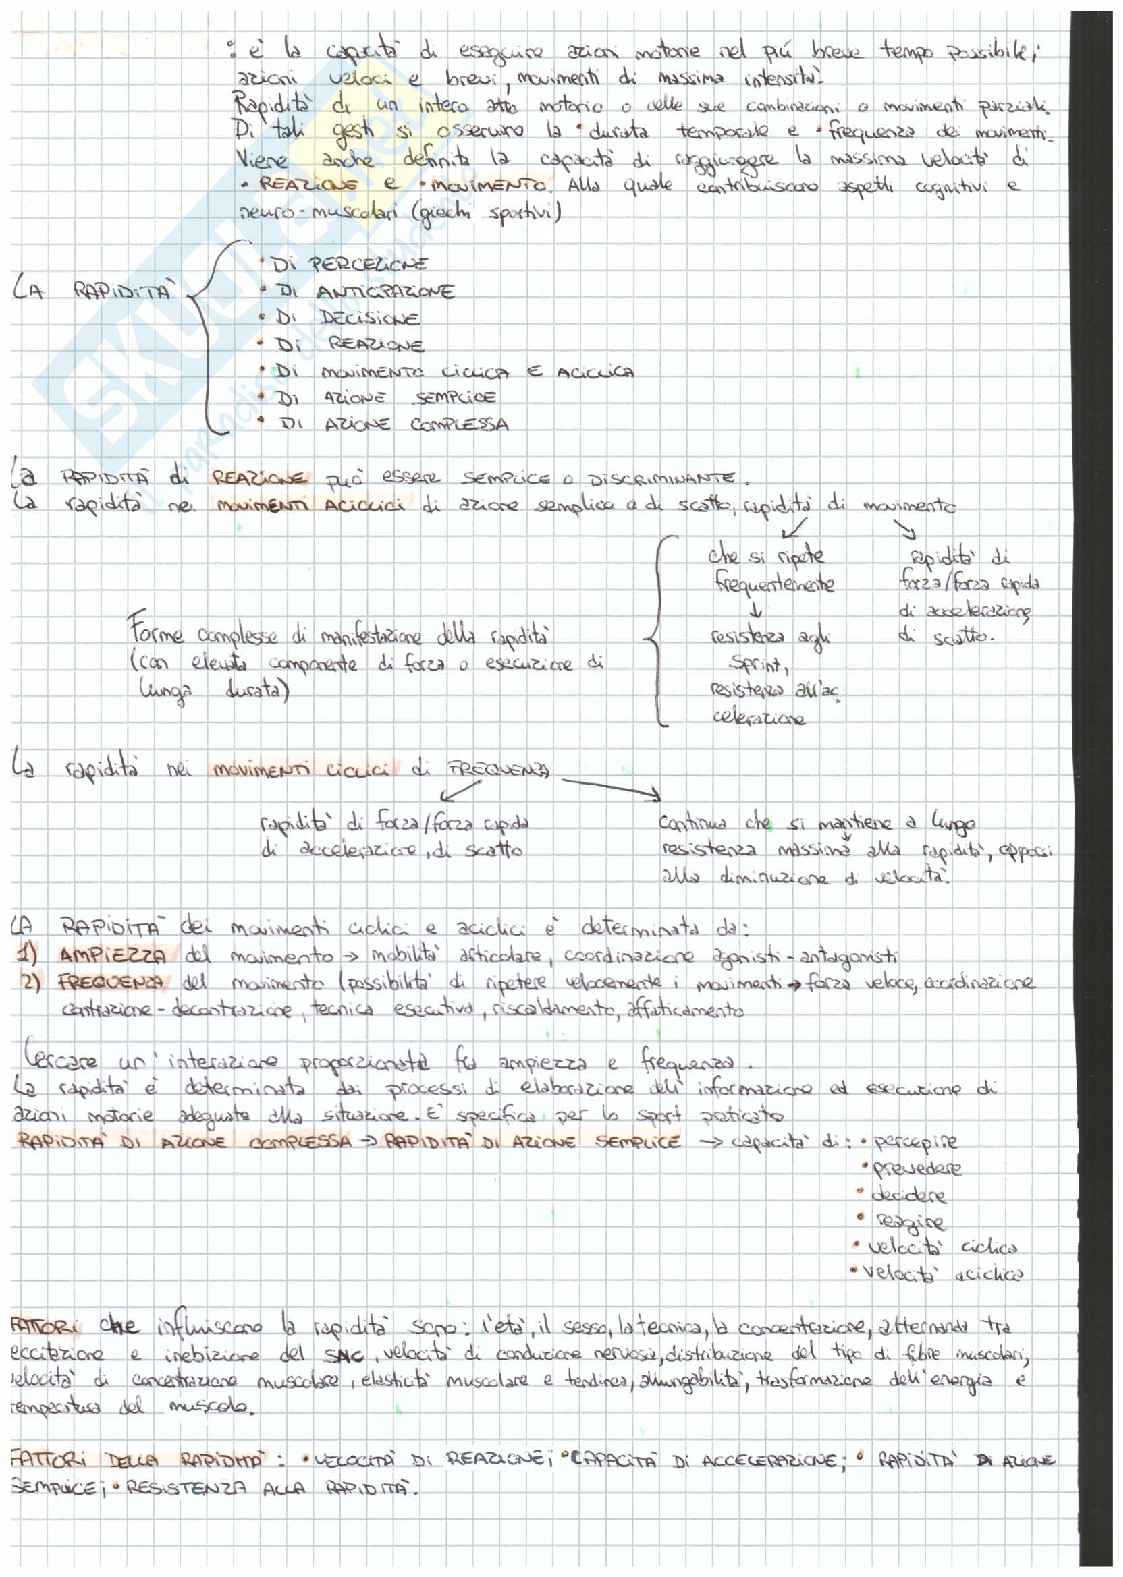 : è la capacità di eseguire azioni motorie nel più breve tempo possibile,
azioni veloci e brevi, movimenti di massima intensità.
Rapidità di un intero atto motorio o delle sue combinazioni o movimenti parziali.
Di tali gesti si osservano la • durata temporale e • frequenza dei movimenti.
Viene anche definita la capacità di raggiungere la massima velocità di
• REAZIONE e • MOVIMENTO. Alla quale contribuiscono aspetti cognitivi e
neuro-muscolari (giochi sportivi)
LA RAPIDITÀ
• DI PERCEZIONE
• DI ANTICIPAZIONE
• DI DECISIONE
• DI REAZIONE
• DI MOVIMENTO CICLICA E ACICLICA
• DI AZIONE SEMPLICE
• DI AZIONE COMPLESSA
SKUOLA
La RAPIDITÀ di REAZIONE può essere SEMPLICE o DISCRIMINANTE.
La rapidità nei MOVIMENTI ACICLICI di azione semplice o di scatto, rapidità di movimento
che si ripete
frequentemente
↓
resistenza agli
sprint,
resistenza all'ac
celerazione
rapidità di
forza/forza rapida
di accelerazione,
di scatto.
Forme complesse di manifestazione della rapidità
(con elevata componente di forza o esecuzione di
lunga durata)
La rapidità nei MOVIMENTI CICLICI di FREQUENZA
rapidità di forza/forza rapida
di accelerazione, di scatto
continua che si mantiene a lungo
resistenza massima alla rapidità, opporsi
alla diminuzione di velocità.
LA RAPIDITÀ dei movimenti ciclici e aciclici è determinata da:
1) AMPIEZZA del movimento → mobilità articolare, coordinazione agonisti-antagonisti
2) FREQUENZA del movimento (possibilità di ripetere velocemente i movimenti → forza veloce, coordinazione
contrazione-decontrazione, tecnica esecutiva, riscaldamento, affaticamento
Cercare un'interazione proporzionata fra ampiezza e frequenza.
La rapidità è determinata dai processi di elaborazione dell'informazione ed esecuzione di
azioni motorie adeguate alla situazione. E' specifica per lo sport praticato
RAPIDITÀ DI AZIONE COMPLESSA → RAPIDITÀ DI AZIONE SEMPLICE → capacità di: • percepire
• prevedere
• decidere
• reagire
• velocità ciclica
• velocità aciclica
FATTORI che influiscono la rapidità sono: l'età, il sesso, la tecnica, la concentrazione, alternanda tra
eccitazione e inebizione del SNC, velocità di conduzione nervosa, distribuzione del tipo di fibre muscolari,
velocità di concentrazione muscolare, elasticità muscolare e tendinea, allungabilità, trasformazione dell'energia e
temperatura del muscolo.
FATTORI DELLA RAPIDITÀ: • VELOCITÀ DI REAZIONE; • CAPACITÀ DI ACCELERAZIONE; • RAPIDITÀ DI AZIONE
SEMPLICE; • RESISTENZA ALLA RAPIDITÀ.